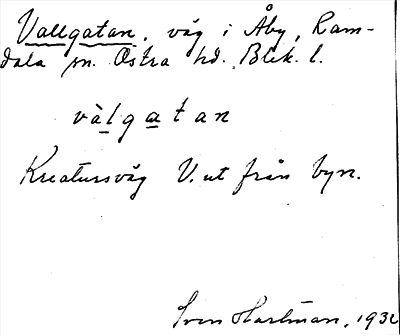 Vallgatan, väg i Åby, Ram-
dala sn. Östra hd. Blek. l.
vàlgatan
Kreatursväg V. ut från byn.
Sven Hartman, 1932